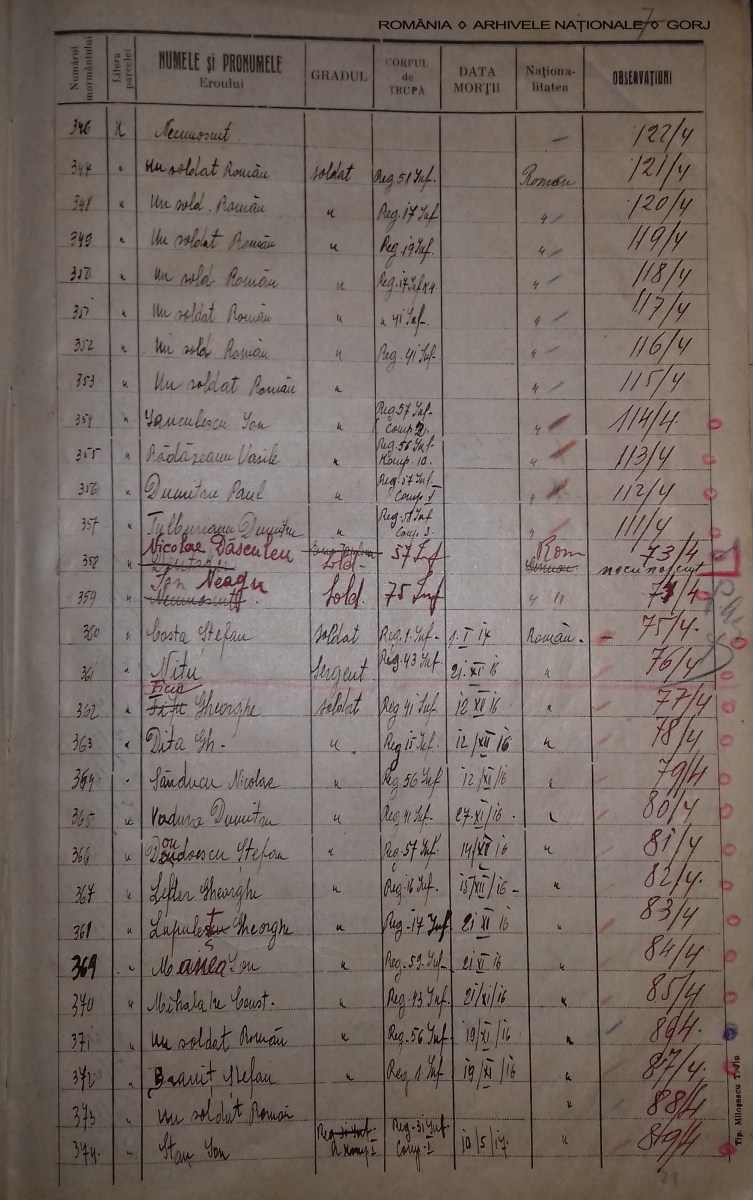 ROMÂNIA ◊ ARHIVELE NAȚIONALE ◊ GORJ
7
Numărul mormântului | Litera parcelei | NUMELE și PRONUMELE Eroului | GRADUL | CORPUL de TRUPĂ | DATA MORȚII | Naționa-litatea | OBSERVAȚIUNI
346 Necunoscut. — 122/4
347 " Un soldat Român soldat Reg. 51 Inf. Român 121/4
348 " Un sold. Român " Reg. 17 Inf " 120/4
349 " Un soldat Român " Reg. 19 Inf. " 119/4
350 " Un sold Român " Reg. 17 Inf " 118/4
351 " Un soldat Român " " 41 Inf. " 117/4
352 " Un sold Român " Reg. 41 Inf. " 116/4
353 " Un soldat Român " " 115/4
354 " Ianculescu Ion " Reg 57 Inf- Comp 2. " 114/4.
355 " Rădăzeanu Vasile " Reg. 56 Inf Komp. 10. " 113/4
356 " Dumitru Paul " Reg. 57 Inf- Comp I " 112/4
357 " Tulbureanu Dumitru " Reg. 58 Inf Comp. 3. " 111/4
358 " Nicolae Dăsculeu Sold- 57 Inf Rom 73/4
necunoscut
359 " Ion Neagu Necunoscut. Sold. 75 Inf " " 74/4
360 " Costa Stefan soldat Reg. 1. Inf- 1. I 17 Român. — 75/4.
361 " Nitu Sergent Reg. 43 Inf. 21. XI 16 " 76/4
362 " Gheorghe soldat Reg 41 Inf 12 XII 16 " 77/4
363 " Dita Gh- " Reg 15 Inf. 12/XII 16 " 78/4
364 " Sănducu Nicolae " Reg. 56 Inf 12/XI/16 " 79/4
365 " Vaduva Dumitru " Reg 41 Inf. 27.XI/16. " 80/4
366 " Doudoescu Stefan " Reg. 57 Inf 14/XII 16 " 81/4
367 " Lefter Gheorghe " Reg. 16 Inf. 15/XII/16 - " 82/4.
368 " Lupulescu Gheorghe " Reg. 17 Inf 21 XI 16 " 83/4
369 " Manea Ion " Reg. 59 Inf- 21 XI 16 " 84/4
370 " Mihalake Const. " Reg. 43 Inf. 21/XI/16 " 85/4
371 " Un soldat Român " Reg. 56 Inf 19/XI/16 " 86/4.
372 " Stefan " Reg 1 Inf 19/XI/16 " 87/4.
373 " Un soldat Român " 88/4
374. " Stan Ion Reg. 31 Inf. Komp. I Reg- 31 Inf. Comp. I 10/5/17. " 89/4
Tip. Miloșescu T.-Jiu